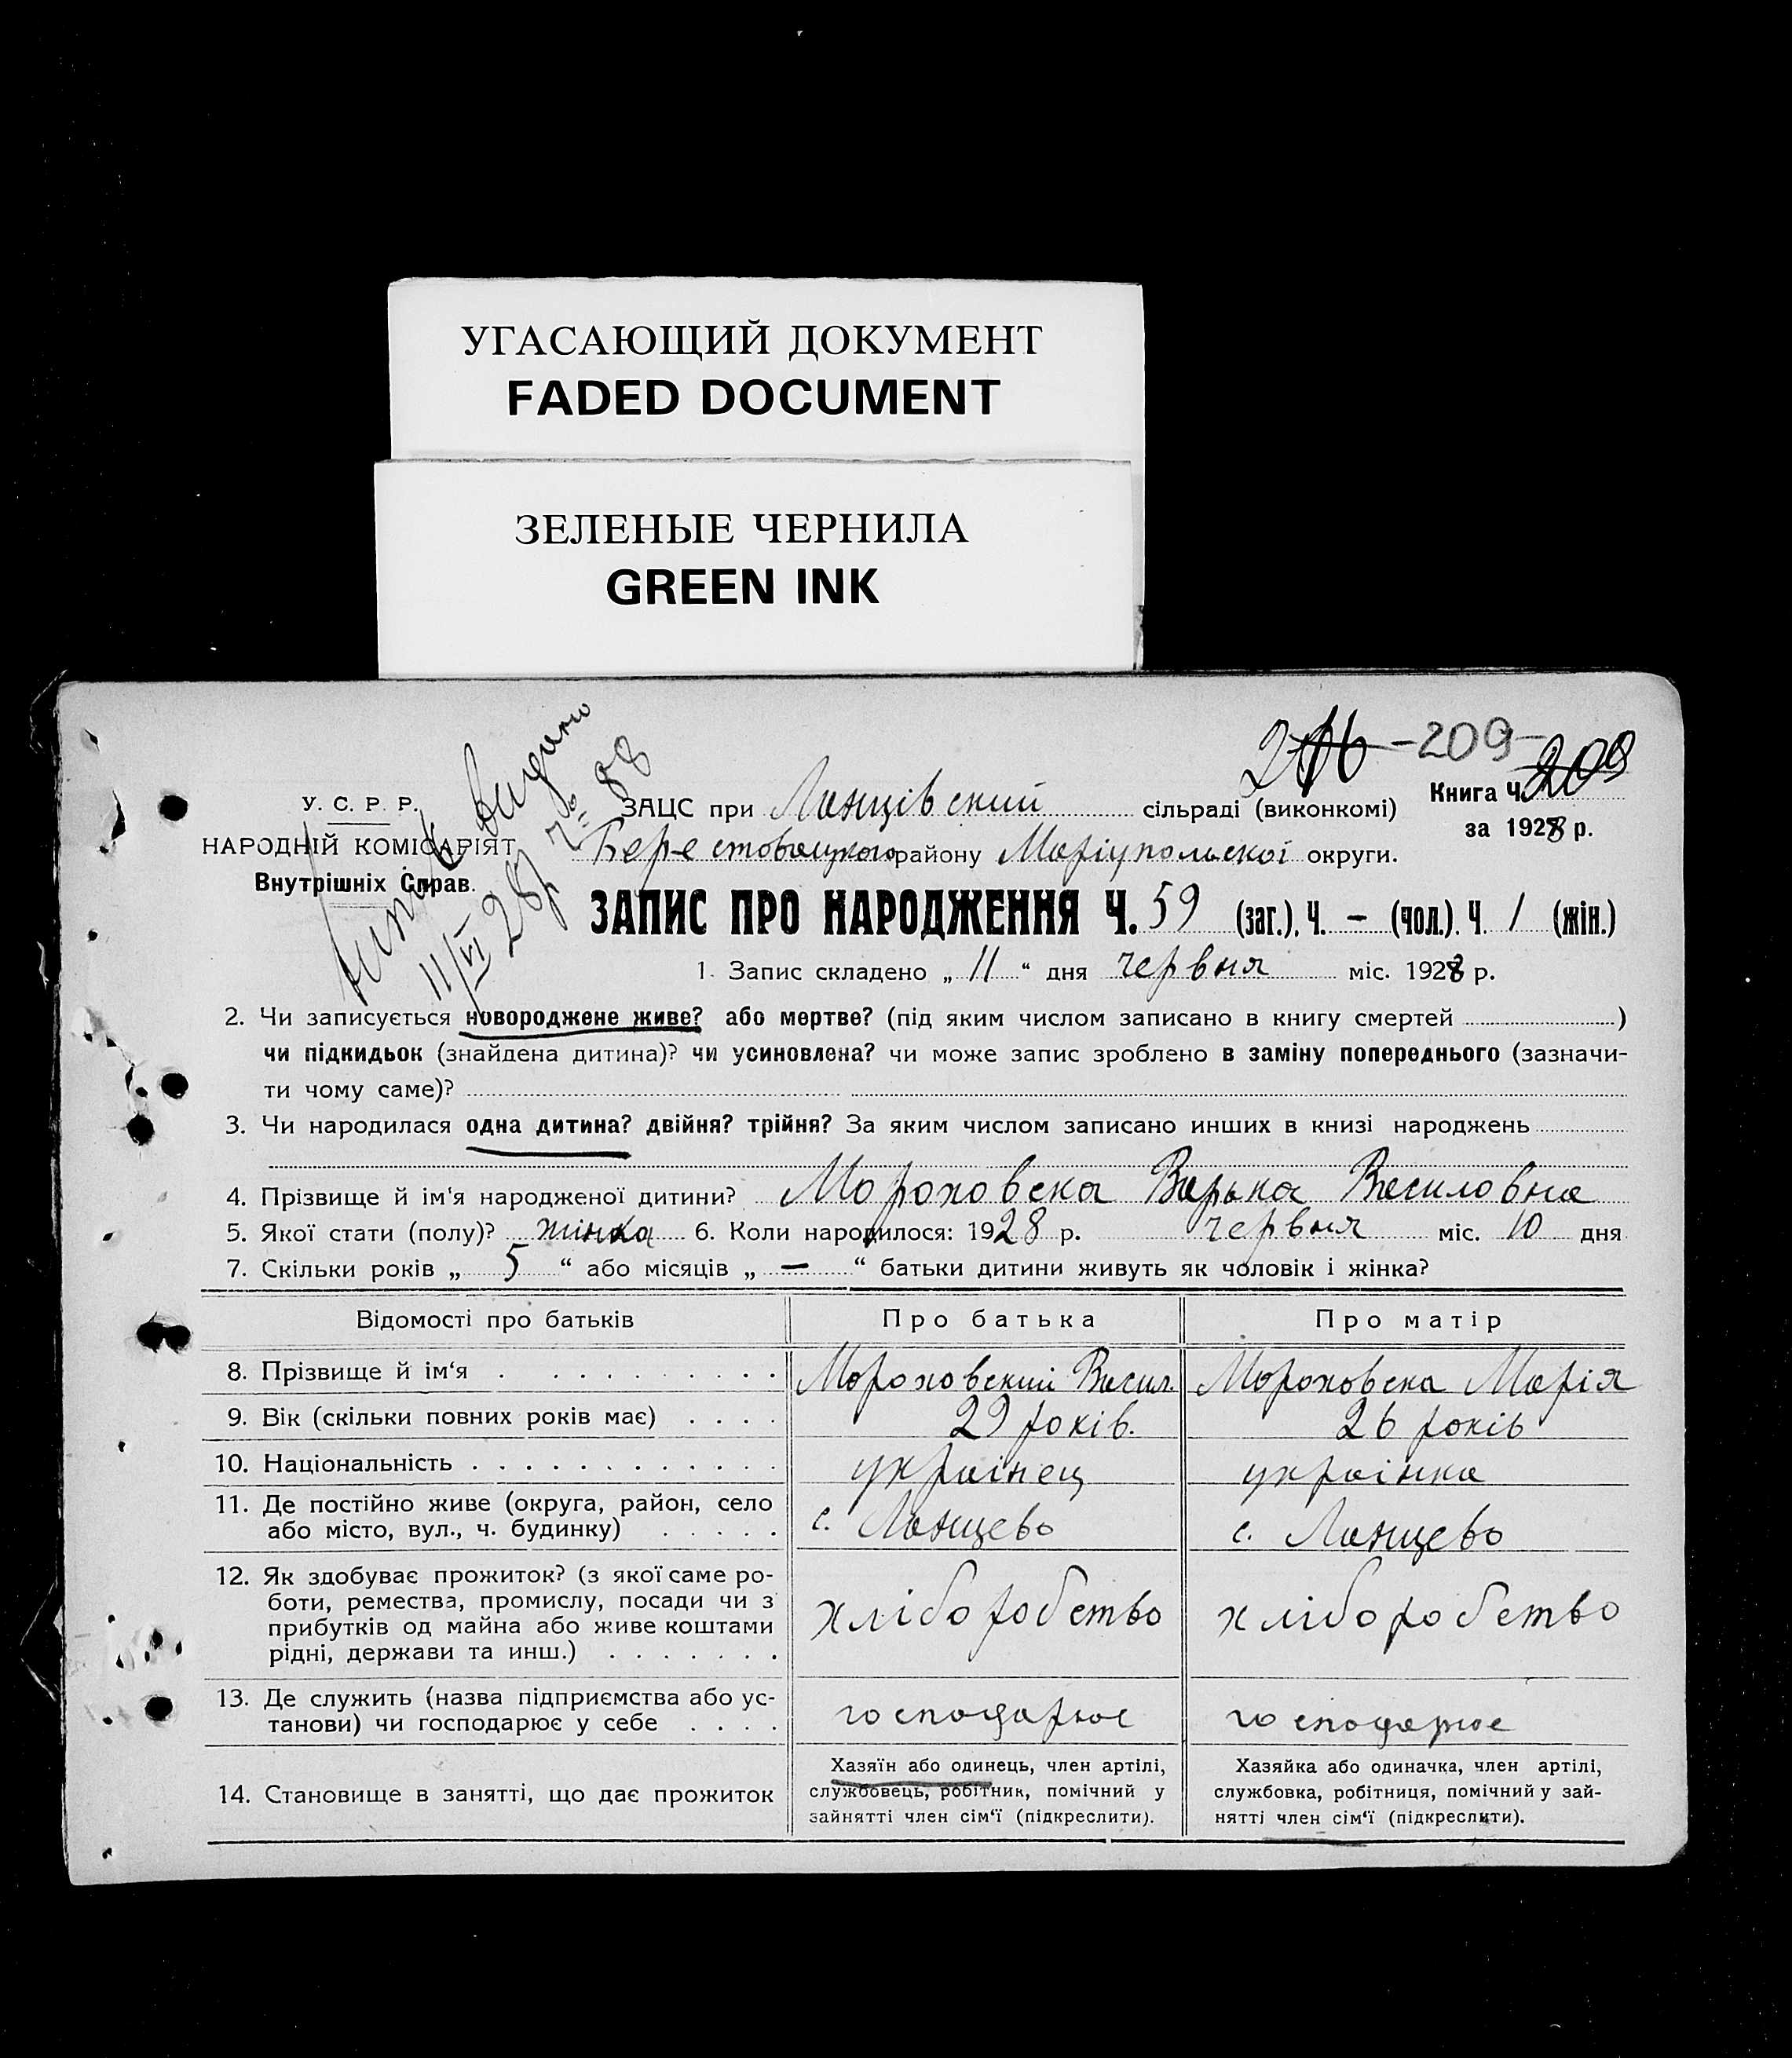 УГАСАЮЩИЙ ДОКУМЕНТ
FADED DOCUMENT
ЗЕЛЕНЫЕ ЧЕРНИЛА
GREEN INK
-209-
209
У. С. Р. Р.
НАРОДНІЙ КОМІСАРІЯТ
Внутрішніх Справ.
видано
11/VI 28р 88
ЗАЦС при Ланцівский сільраді (виконкомі)
Книга Ч.
за 1928 р.
Берестовецкого району Маріупольскої округи.
ЗАПИС ПРО НАРОДЖЕННЯ Ч. 59 (заг.). Ч. – (чол.). Ч. 1 (жін.)
1. Запис складено „ 11 “ дня червня міс. 1928 р.
2. Чи записується новороджене живе? або мертве? (під яким числом записано в книгу смертей )
чи підкидьок (знайдена дитина)? чи усиновлена? чи може запис зроблено в заміну попереднього (зазначи-
ти чому саме)?
3. Чи народилася одна дитина? двійня? трійня? За яким числом записано инших в книзі народжень
4. Прізвище й ім'я народженої дитини? Мороховска Варька Василовна
5. Якої стати (полу)? жінка 6. Коли народилося: 1928 р. червня міс. 10 дня
7. Скільки років „ 5 “ або місяців „ – “ батьки дитини живуть як чоловік і жінка?
Відомості про батьків Про батька Про матір
8. Прізвище й ім‘я Мороховский Васил. Мороховска Марія
9. Вік (скільки повних років має) 29 років. 26 років
10. Національність українец українка
11. Де постійно живе (округа, район, село
або місто, вул., ч. будинку) с. Ланцево с. Ланцево
12. Як здобуває прожиток? (з якої саме ро-
боти, ремества, промислу, посади чи з
прибутків од майна або живе коштами
рідні, держави та инш.) хліборобство хліборобство
13. Де служить (назва підприємства або ус-
танови) чи господарює у себе господарює господарює
14. Становище в занятті, що дає прожиток
Хазяїн або одинець, член артілі,
службовець, робітник, помічний у
зайнятті член сім‘ї (підкреслити).
Хазяйка або одиначка, член артілі,
службовка, робітниця, помічний у зай-
нятті член сім‘ї (підкреслити).